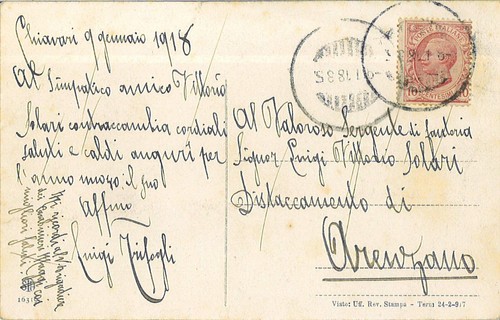 Chiavari 9 gennaio 1918
Al Simpatico amico Vittorio
Solari contraccambia cordiali
saluti e caldi auguri per
l'anno nuovo: il suo
Affmo
Luigi Trifogli
migliori saluti
1631
POSTE ITALIANE
10
CENTESIMI
10
Al Valoroso Sergente di fanteria
Signor Luigi Vittorio Solari
Distaccamento di
Arenzano
Visto: Uff. Rev. Stampa - Terni 24-2-917